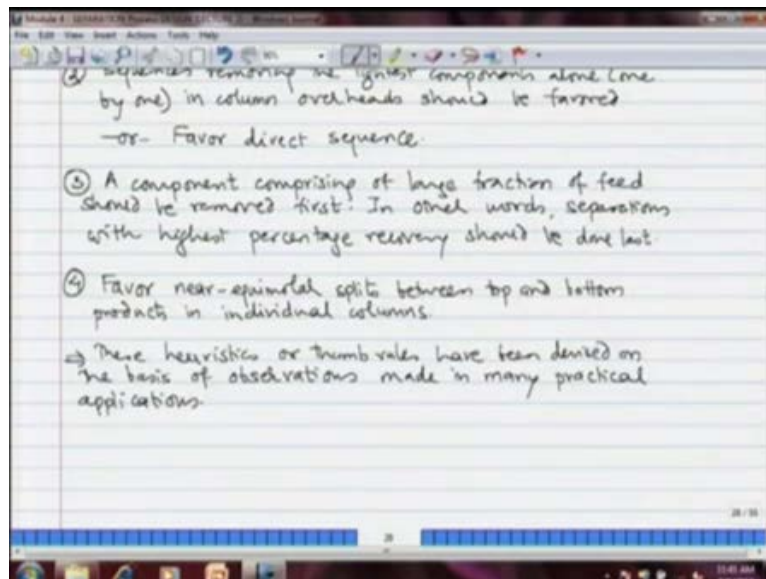 Module 4 - SEPARATION Process DESIGN LECTURE 2 - Windows Journal
File Edit View Insert Actions Tools Help
② Sequences removing the lightest components alone (one
by one) in column overheads should be favored
-or- Favor direct sequence.
③ A component comprising of large fraction of feed
should be removed first. In other words, separations
with highest percentage recovery should be done last
④ Favor near-equimolar splits between top and bottom
products in individual columns.
⇒ These heuristics or thumb rules have been devised on
the basis of observations made in many practical
applications.
28
11:45 AM